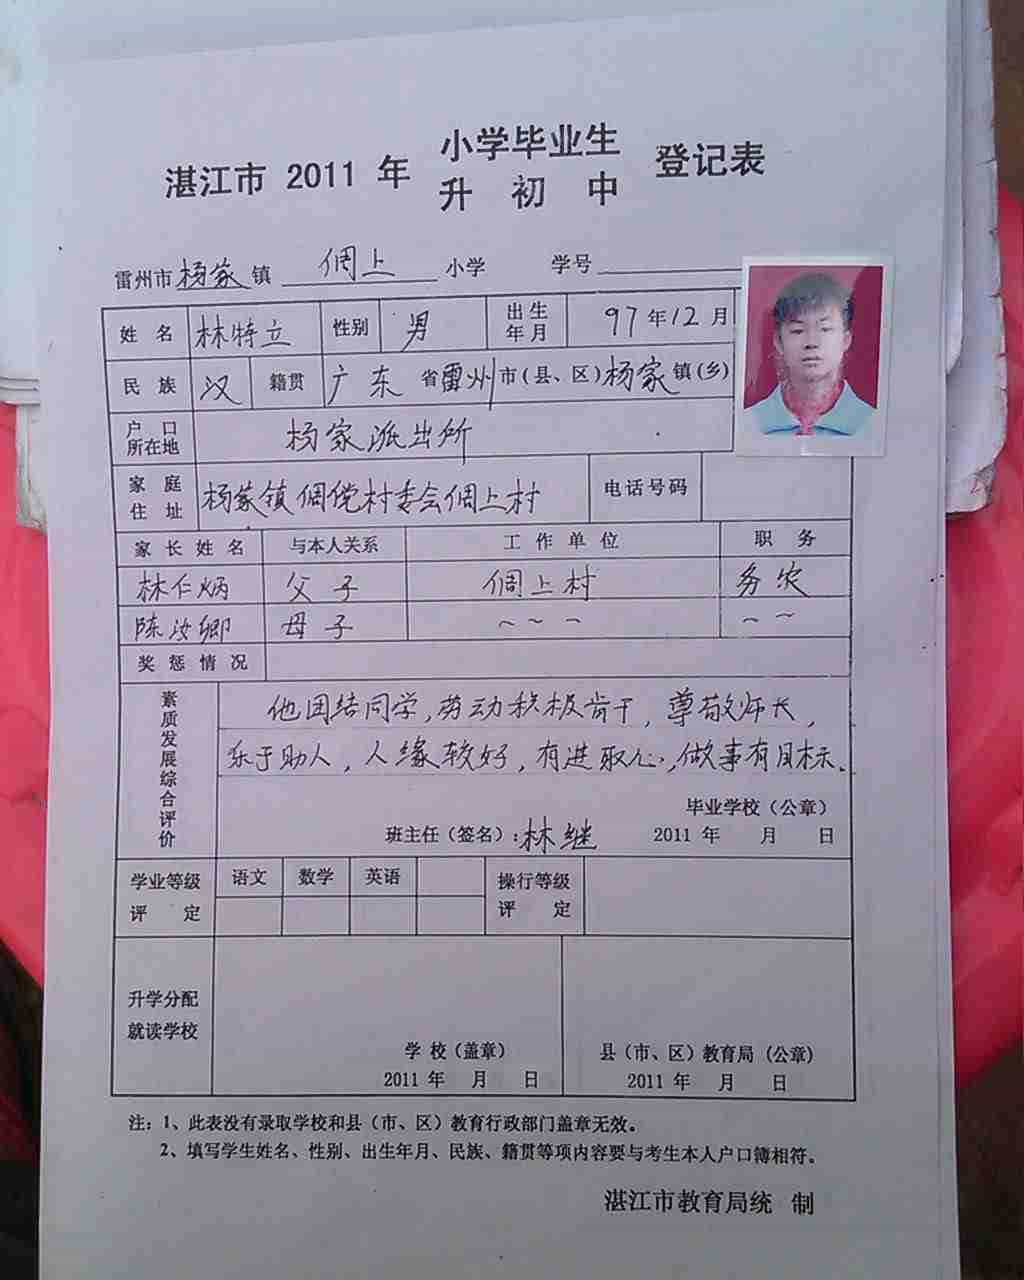 湛江市 2011 年 小学毕业生 登记表
升 初 中
雷州市杨家镇 倜上 小学 学号
姓 名 林特立 性别 男 出生年月 97年12月
民 族 汉 籍贯 广东省雷州市(县、区)杨家镇(乡)
户 口 所在地 杨家派出所
家 庭 住 址 杨家镇倜傥村委会倜上村 电话号码
家 长 姓 名 与本人关系 工 作 单 位 职 务
林仁炳 父子 倜上村 务农
陈汝卿 母子 ~ ~ ~ ~ ~
奖 惩 情 况
素质发展综合评价
他团结同学,劳动积极肯干,尊敬师长,
乐于助人,人缘较好,有进取心,做事有目标。
毕业学校(公章)
班主任(签名):林继 2011 年 月 日
学业等级 评 定 语文 数学 英语 操行等级 评 定
升学分配
就读学校
学 校(盖章) 县(市、区)教育局(公章)
2011 年 月 日 2011 年 月 日
注:1、此表没有录取学校和县(市、区)教育行政部门盖章无效。
2、填写学生姓名、性别、出生年月、民族、籍贯等项内容要与考生本人户口簿相符。
湛江市教育局统 制